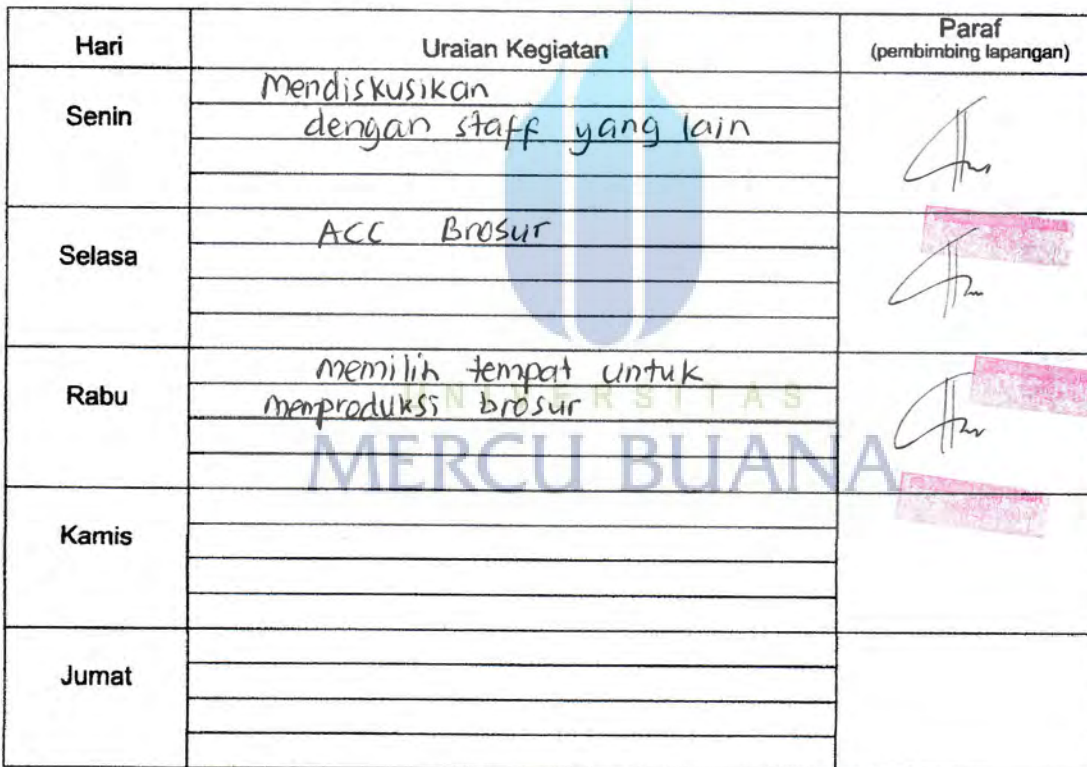 Hari Uraian Kegiatan Paraf
(pembimbing lapangan)
Senin
Mendiskusikan
dengan staff yang lain
Selasa
ACC Brosur
Rabu
memilih tempat untuk
memproduksi brosur
UNIVERSITAS
MERCU BUANA
Kamis
Jumat